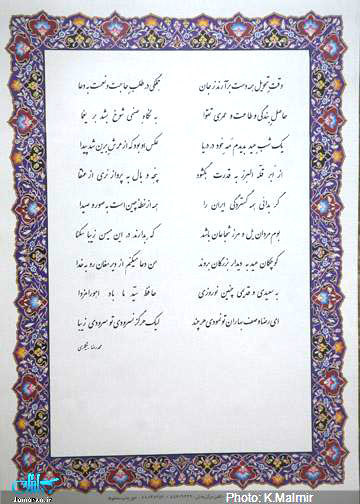 وقت تحویل همه دست برآرند ز جان
جملگی در طلب حاجت و نعمت به دعا
حاصل بندگی و طاعت و عمری تقوا
به نگاه صنمی شوخ بشد بر یغما
یک شب عید بدیدم مه خود در دریا
عکس او بود که از عرش برین شد پیدا
از ابر قله البرز به قدرت بگشود
پنجه و بال به پرواز نری از عنقا
گر بدانی همه گستردگی ایران را
همه از خطه چین است به صور و صیدا
بوم مردان یل و مرز شجاعان باشد
که بدارند در این میهن زیبا سکنا
کودکان عید به دیدار بزرگان بروند
من دعا میکنم از دیر مغان رو به خدا
به سعیدی و قدیمی چنین نوروزی
حافظ سید ما باد اهورامزدا
ای رضا وصف بهاران تو نمودی هر چند
لیک هرگز نسرودی تو سرودی زیبا
محمدرضا
Photo: K.Malmir